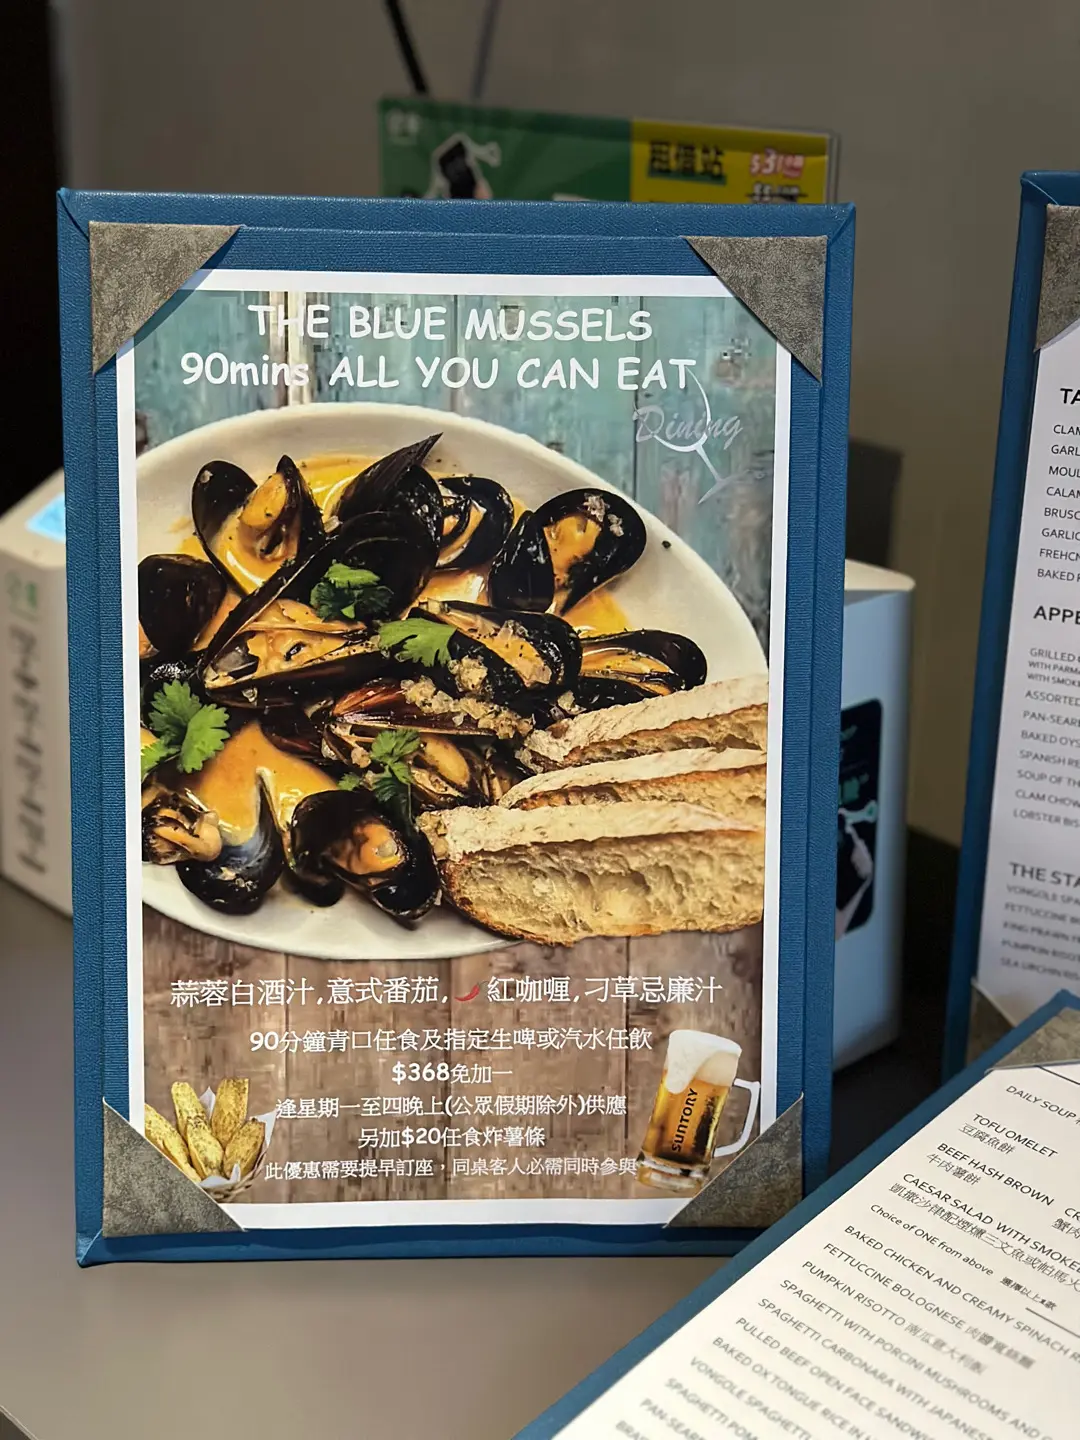 租借站
THE BLUE MUSSELS
90mins ALL YOU CAN EAT
Dining
蒜蓉白酒汁,意式番茄,🌶紅咖喱,刁草忌廉汁
90分鐘青口任食及指定生啤或汽水任飲
$368免加一
逢星期一至四晚上(公眾假期除外)供應
另加$20任食炸薯條
此優惠需要提早訂座，同桌客人必需同時參與
SUNTORY
CLAM
GARL
MOUL
CALAM
BRUSC
GARLIC
FREHCH
BAKED
APPE
GRILLED
WITH PARMA
WITH SMOKE
ASSORTED
PAN-SEARE
BAKED OYS
SPANISH RE
SOUP OF TH
CLAM CHOW
LOBSTER BIS
THE STA
VONGOLE SPA
FETTUCCINE
KING PRAWN
PUMPKIN RISO
SEA URCHIN RIS
DAILY SOUP
TOFU OMELET
豆腐魚餅
BEEF HASH BROWN
牛肉薯餅
CAESAR SALAD WITH SMOKE
凱撒沙律配煙燻三文魚或帕馬火
Choice of ONE from above 選擇以上1款
BAKED CHICKEN AND CREAMY SPINACH
FETTUCCINE BOLOGNESE 肉醬寬條麵
PUMPKIN RISOTTO 南瓜意大利飯
SPAGHETTI WITH PORCINI MUSHROOMS AND
SPAGHETTI CARBONARA WITH JAPANES
PULLED BEEF OPEN FACE SANDW
BAKED OX TONGUE RICE IN
VONGOLE SPAGHETTI
SPAGHETTI POM
PAN-SEAR